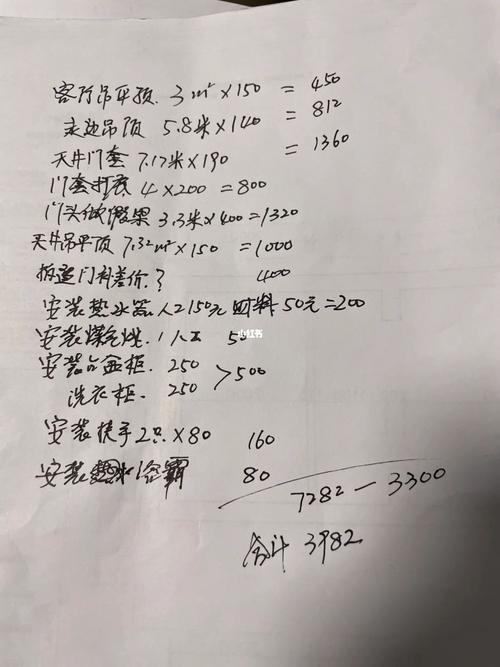 客厅吊平顶. 3㎡×150 = 450
走边吊顶 5.8米×140 = 812
天井门套 7.17米×190 = 1360
门套打底 4×200=800
门头做假果 3.3米×400=1320
天井吊平顶 7.32㎡×150=1000
拆道门补差价.? 400
安装热水器.人工150元 材料50元=200
安装煤气灶. 1人工 50
小红书
安装台盆柜. 250
洗衣柜. 250 >500
安装扶手2只×80 160
安装浴霸 80
7282-3300
合计 3982